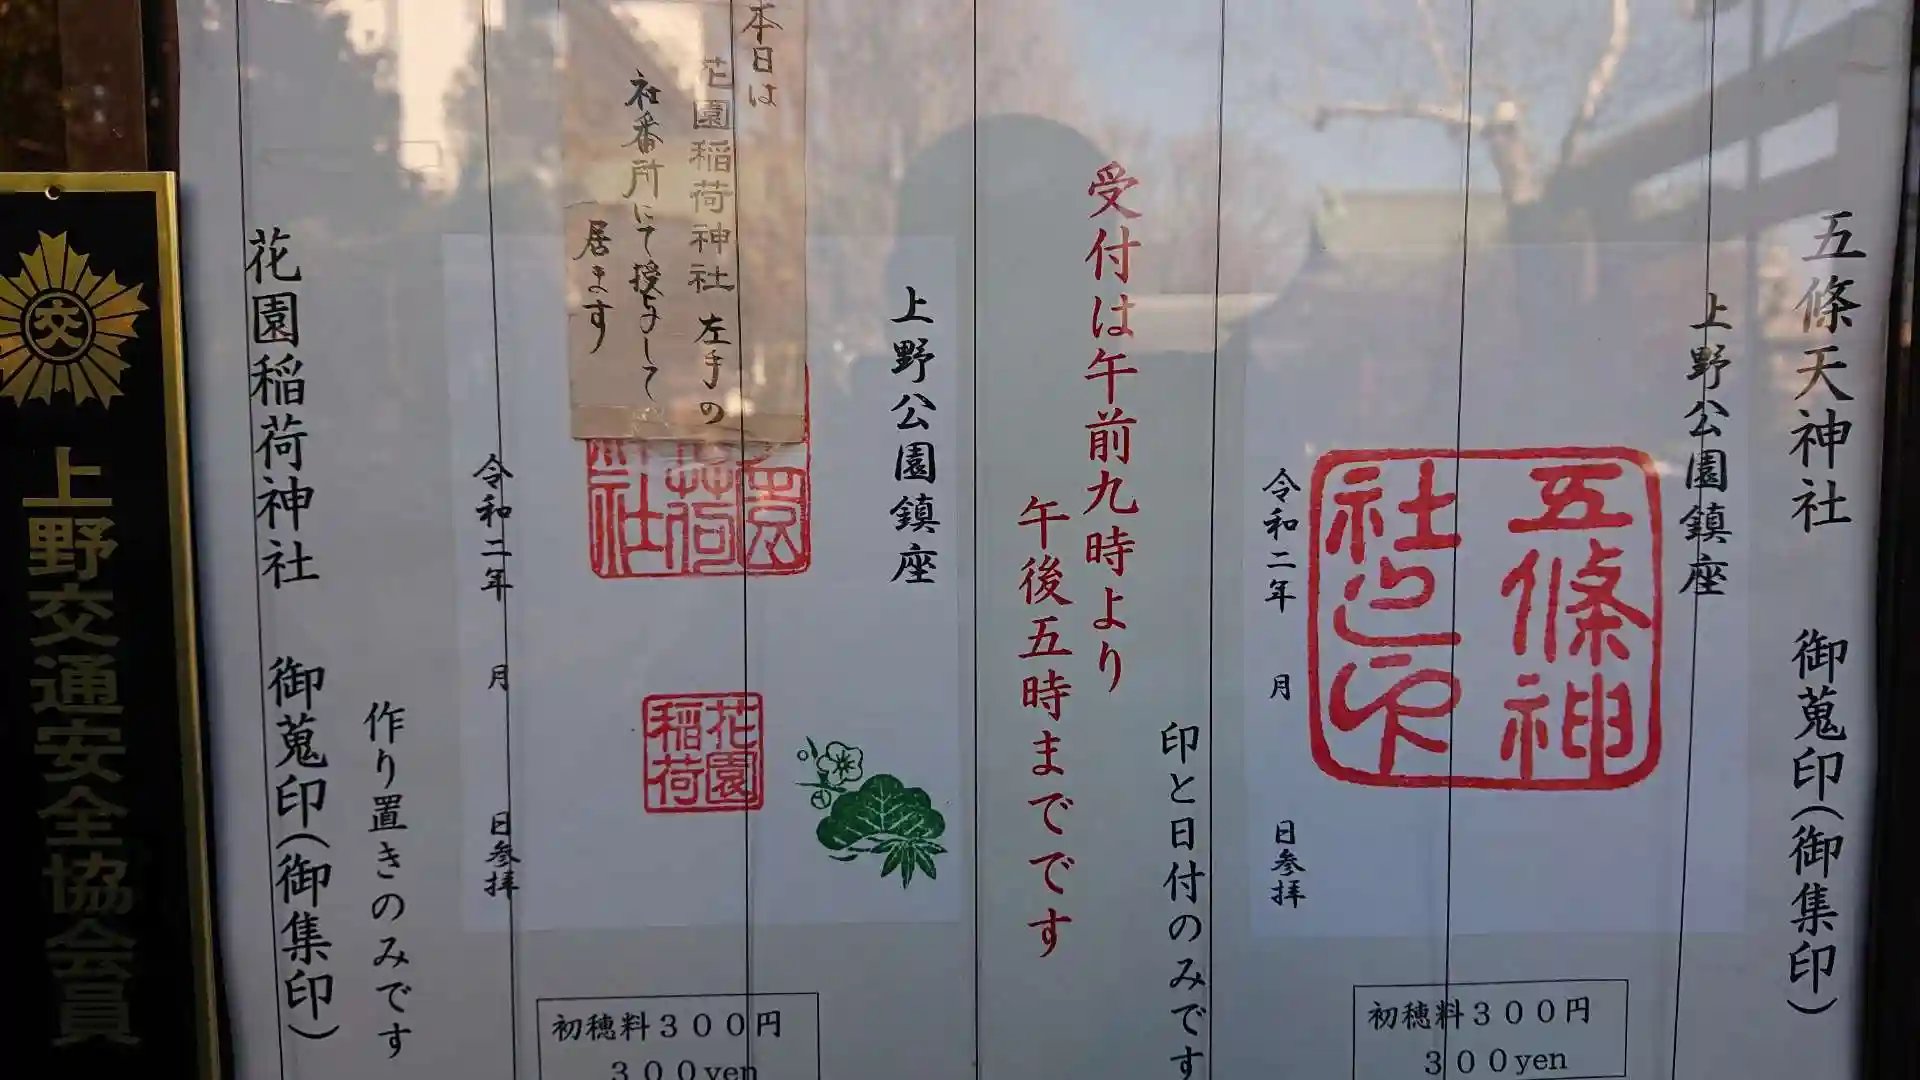 五條天神社 御蒐印(御集印)
上野公園鎮座
五條神
社之印
令和二年 月 日参拝
初穂料300円
300yen
印と日付のみです
受付は午前九時より
午後五時までです
上野公園鎮座
本日は
花園稲荷神社 左手の
社番所にて授与して
居ます
園
荷
社
花園
稲荷
令和二年 月 日参拝
初穂料300円
300yen
作り置きのみです
花園稲荷神社 御蒐印(御集印)
交
上野交通安全協会員